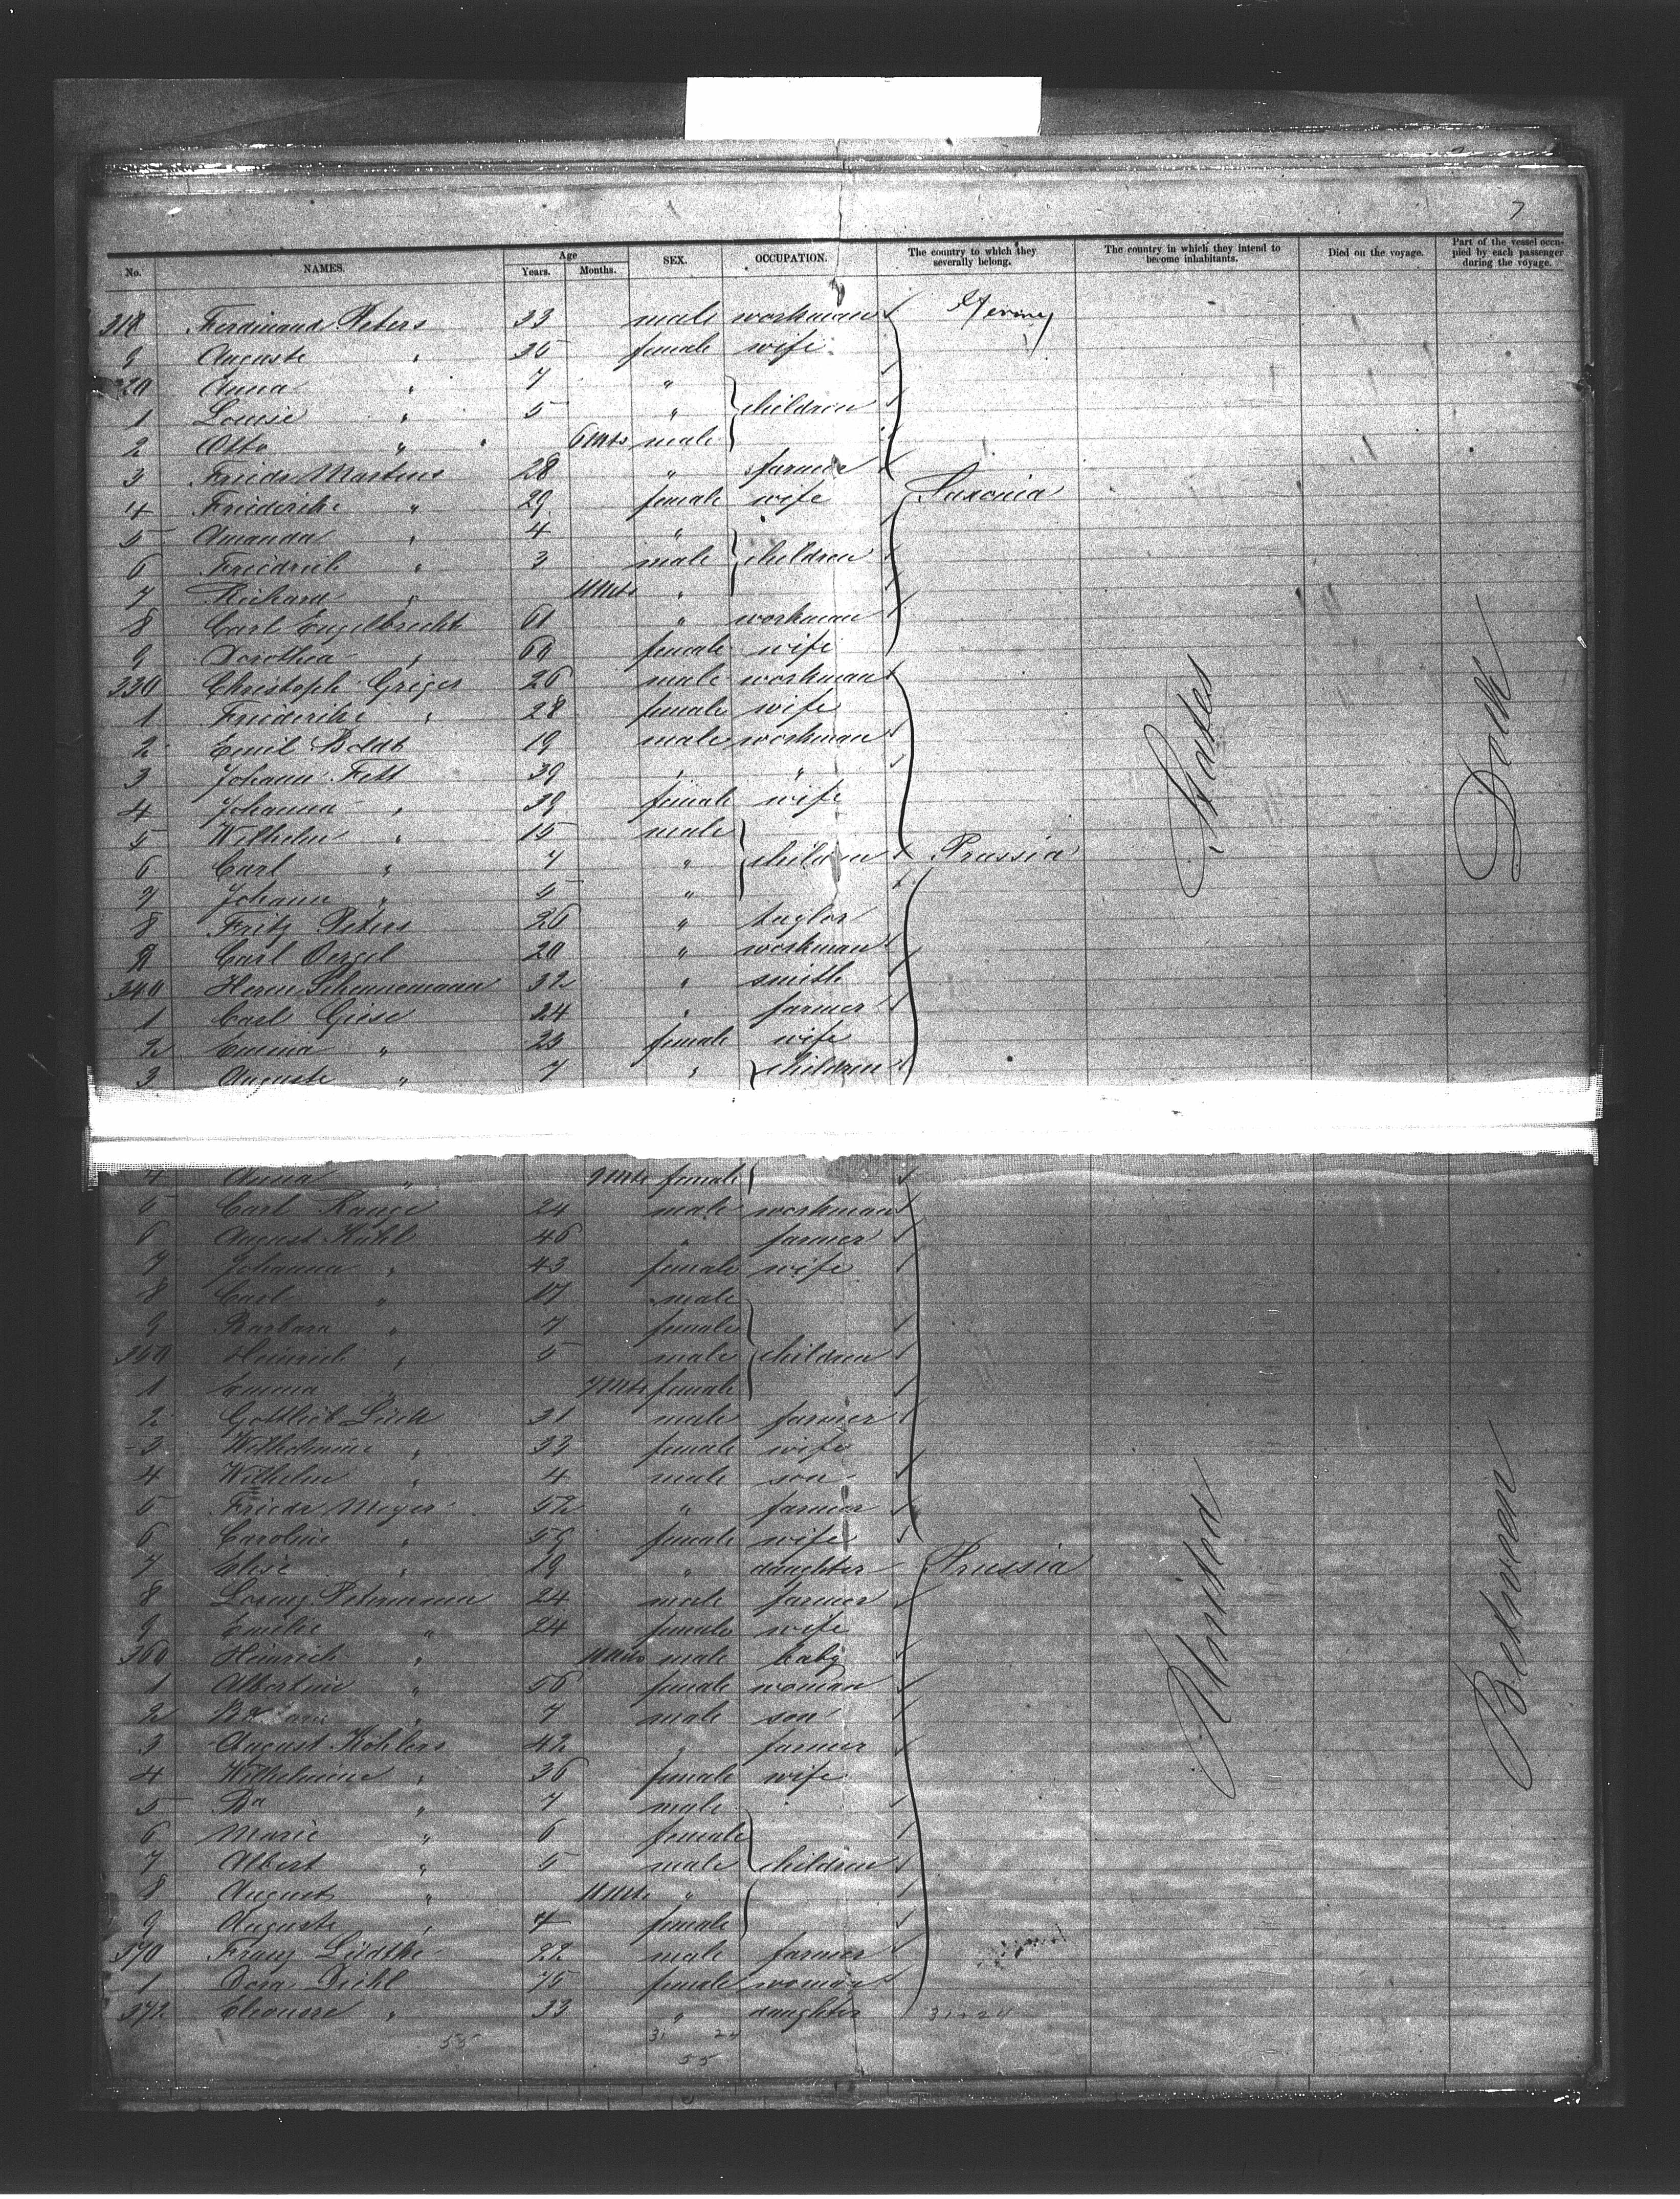 7
No. NAMES. Age Years. Months. SEX. OCCUPATION. The country to which they severally belong. The country in which they intend to become inhabitants. Died on the voyage. Part of the vessel occupied by each passenger during the voyage.
318 Ferdinand Peters 33 male workman
9 Auguste " 35 female wife
320 Anna " 7 "
1 Louise " 5 " children
2 Otto " 6 Mts male
3 Friedr Martens 28 " farmer
4 Friederike " 29 female wife Saxonia
5 Amanda " 4 "
6 Friedrich " 3 male children
7 Richard " 11 Mts "
8 Carl Engelbrecht 61 " workman
9 Dorothea " 60 female wife
330 Christoph Griger 26 male workman
1 Friederike " 28 female wife
2 Emil Boldt 19 male workman
3 Johann Fett 39 " "
4 Johanna " 39 female wife
5 Wilhelm " 15 male
6 Carl " 7 " children Prussia
7 Johann " 5 "
8 Fritz Peters 26 " taylor
9 Carl Oergel 20 " workman
340 Herm Schunemann 32 " smith
1 Carl Giese 24 " farmer
2 Emma " 23 female wife
3 Auguste " 7 " children
4 Anna " 9 Mts female
5 Carl Range 24 male workman
6 August Kuhl 46 " farmer
7 Johanna " 43 female wife
8 Carl " 17 male
9 Barbara " 7 female
350 Heinrich " 5 male children
1 Emma " 7 Mts female
2 Gottlieb Lück 31 male farmer
3 Wilhelmine " 33 female wife
4 Wilhelm " 4 male son
5 Friedr Meyer 52 " farmer
6 Caroline " 59 female wife
7 Elise " 19 " daughter Prussia
8 Lorenz Petermann 24 male farmer
9 Emilie " 24 female wife
360 Heinrich " 10 Mts male baby
1 Albertine " 56 female woman
2 " 7 male son
3 August Kohlers 42 " farmer
4 Wilhelmine " 36 female wife
5 " 7 male
6 Marie " 6 female
7 Albert " 5 male children
8 August " 11 Mts "
9 Auguste " 4 female
370 Franz Lüdthe 22 male farmer
1 Dora Diehl 75 female woman
372 Eleonore " 33 " daughter 31+24
55 31 24
55
United States
Between Deck